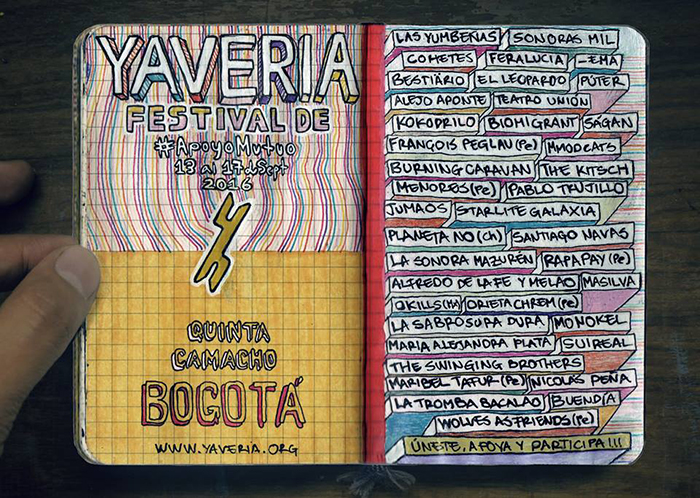 YAVERIA
FESTIVAL DE
#ApoyoMutuo
13 al 17 d Sept
2016
QUINTA
CAMACHO
BOGOTÁ
WWW.YAVERIA.ORG
LAS YUMBEÑAS SONORAS MIL
COMETES FERALUCIA -EMA
BESTIÄRIO EL LEOPARDO PÚTER
ALEJO APONTE TEATRO UNIÓN
KOKODRILO BIOMIGRANT SAGAN
FRANÇOIS PEGLAU (Pe) MMODCATS
BURNING CARAVAN THE KITSCH
MENORES (Pe) PABLO TRUJILLO
JUMAOS STARLITE GALAXIA
PLANETA NO (Ch) SANTIAGO NAVAS
LA SONORA MAZURÉN RAPAPAY (Pe)
ALFREDO DE LA FE Y MELAO MASILVA
QKILLS (Mx) ORIETA CHREM (Pe)
LA SABROSURA DURA MONOKEL
MARIA ALEJANDRA PLATA SUIREAL
THE SWINGING BROTHERS
MARIBEL TAFUR (Pe) NICOLAS PEÑA
LA TROMBA BACALAO BUENDÍA
WOLVES AS FRIENDS (Pe)
ÚNETE, APOYA Y PARTICIPA !!!